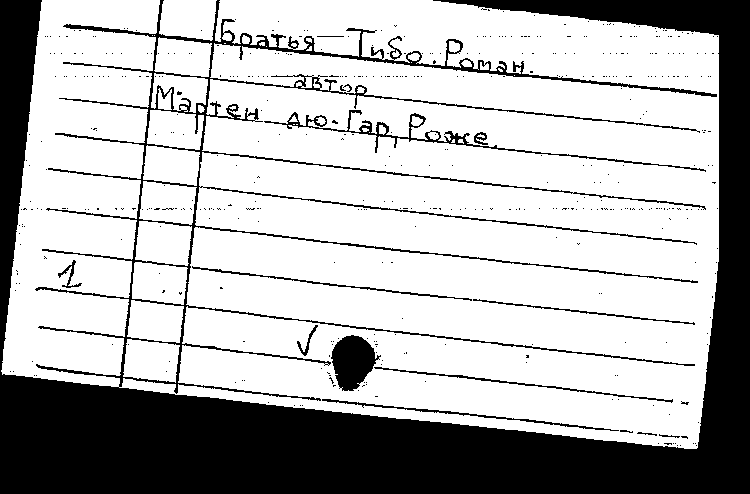 Братья Тибо. Роман.
автор
Мартен дю-Гар, Роже.
1